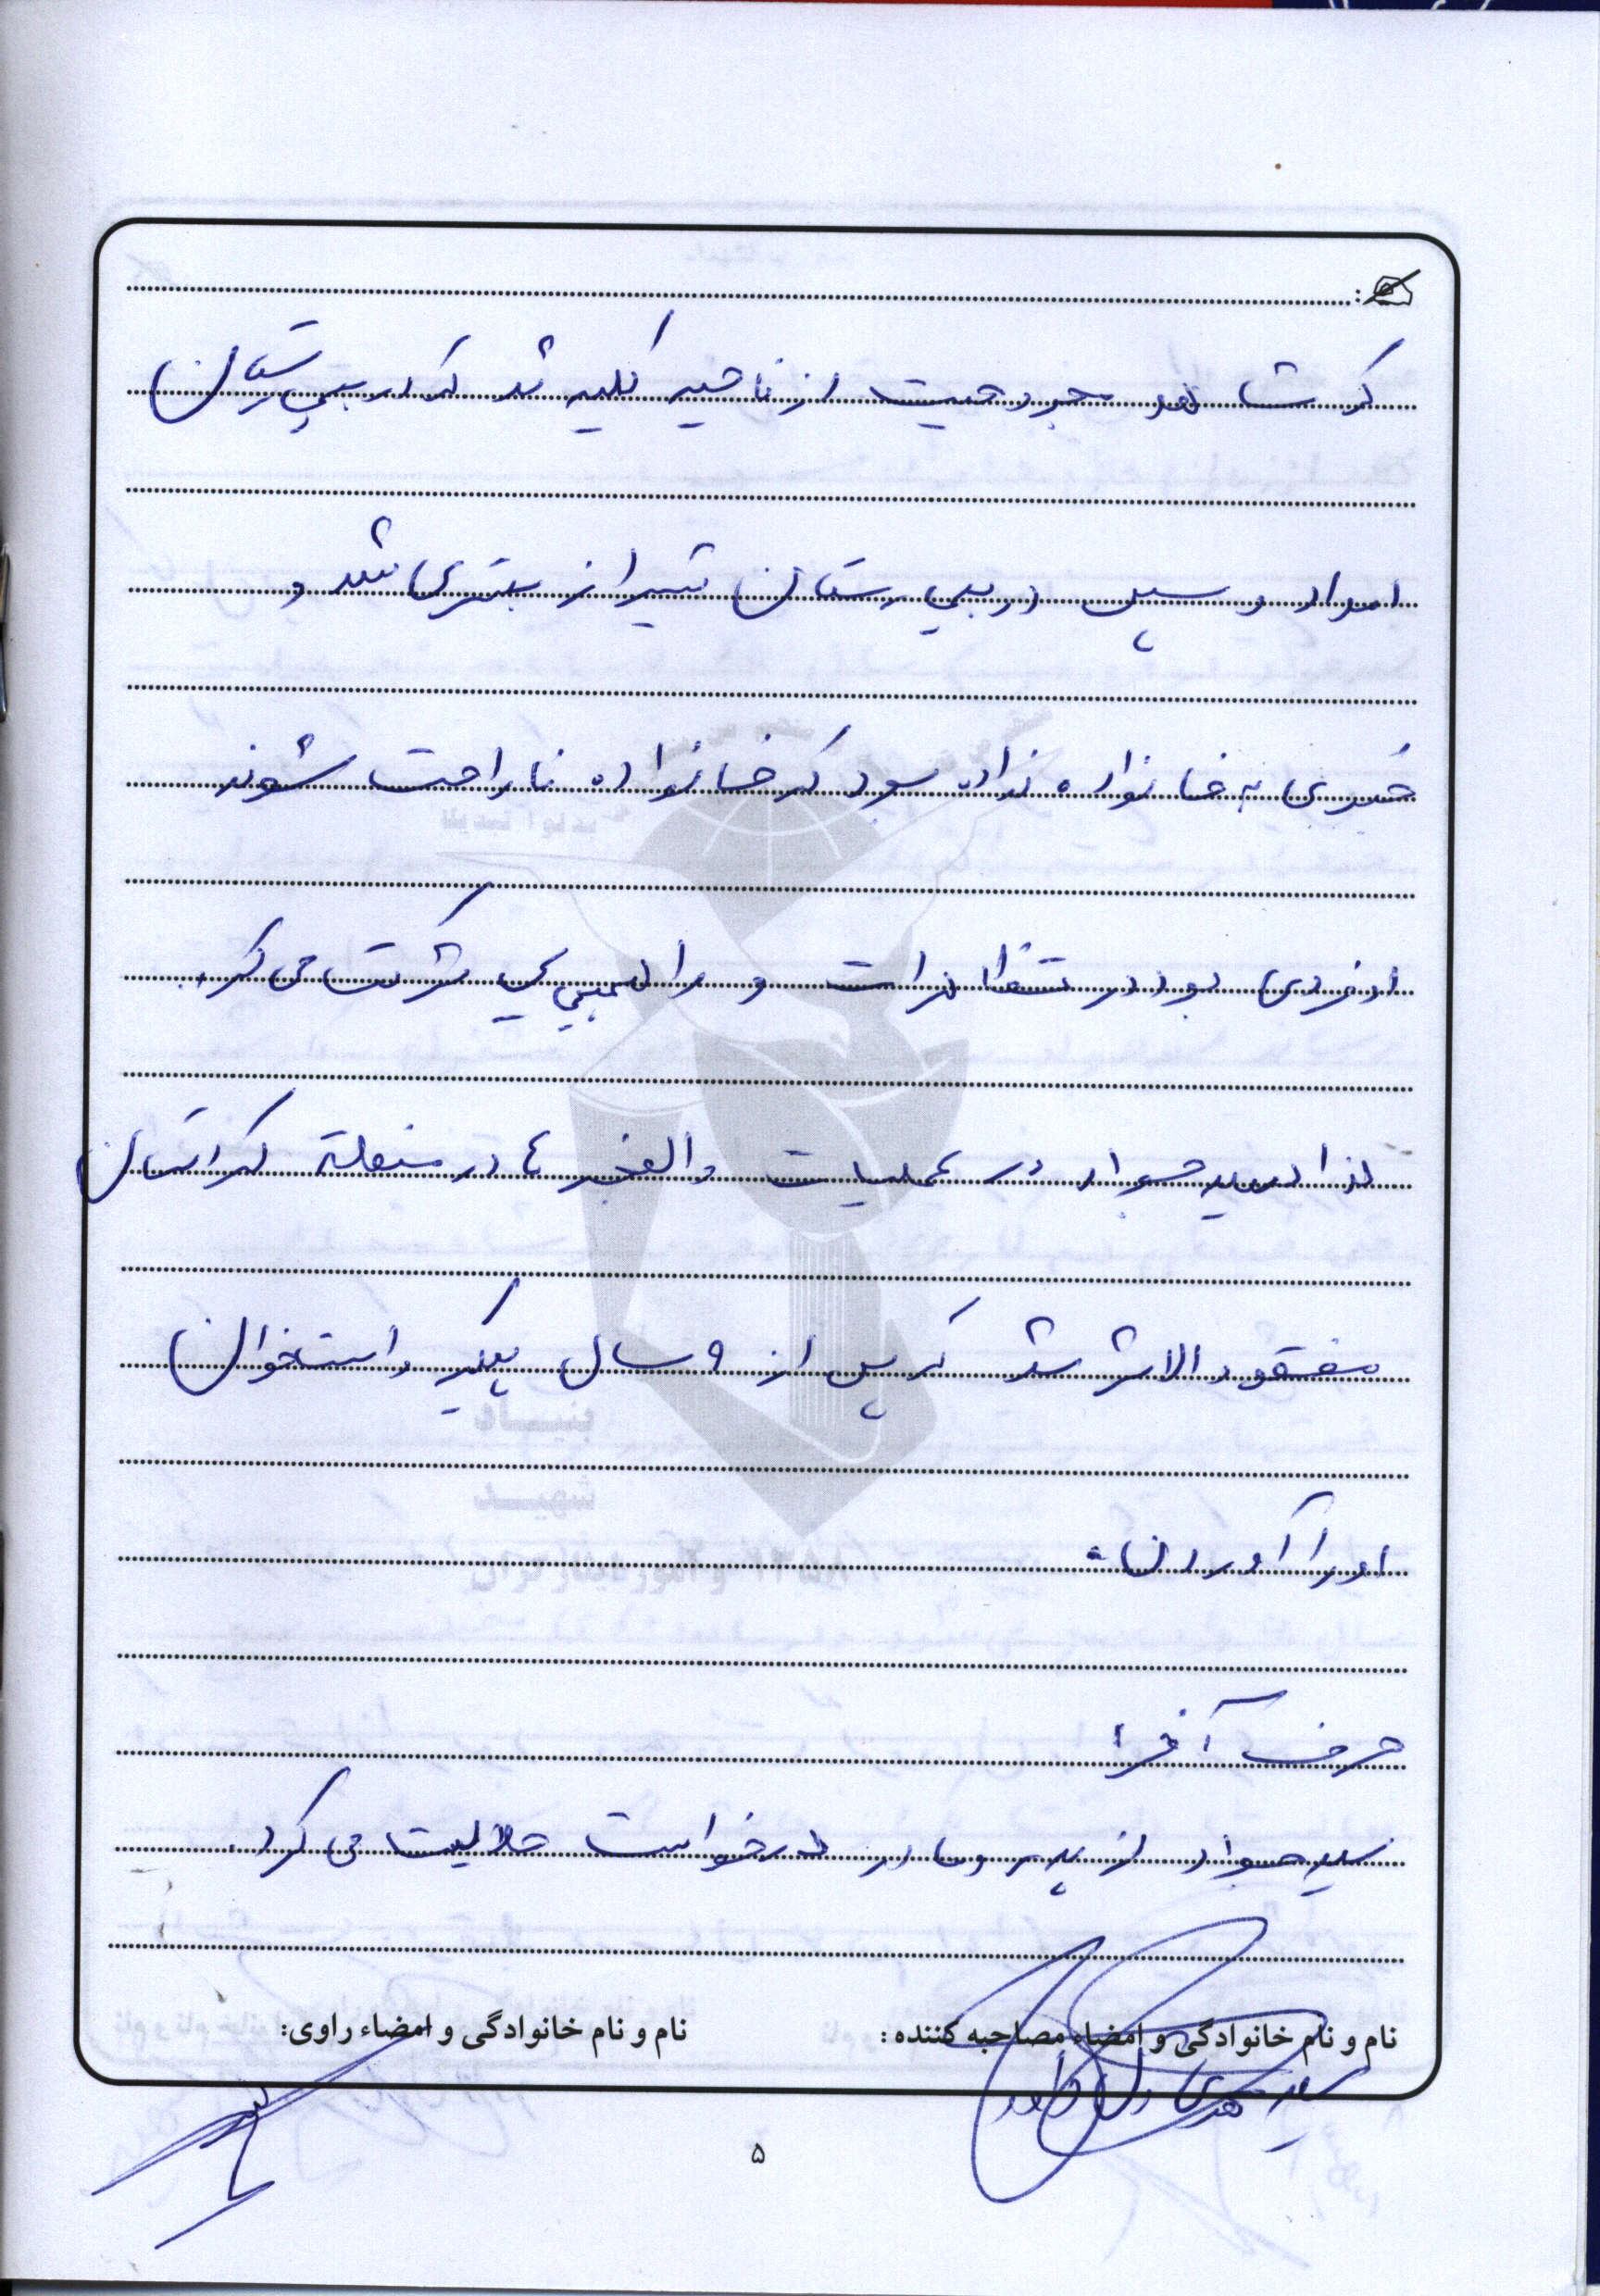 که شاهد مجروحیت از ناحیه کلیه شد که در بیمارستان
امداد و سپس در بیمارستان شیراز بستری شد و
خبری به خانواده نداده بود که خانواده ناراحت شوند
او فردی بود در تظاهرات و راهپیمایی شرکت می کرد.
لذا سید جواد در عملیات والفجر ۴ در منطقه کردستان
مفقود الاثر شد که پس از ۹ سال پیکر و استخوان
او را آوردند.
حرف آخر:
سید جواد از پدر و مادر درخواست حلالیت می کرد.
نام و نام خانوادگی و امضاء مصاحبه کننده :
نام و نام خانوادگی و امضاء راوی:
سید مهدی
۵